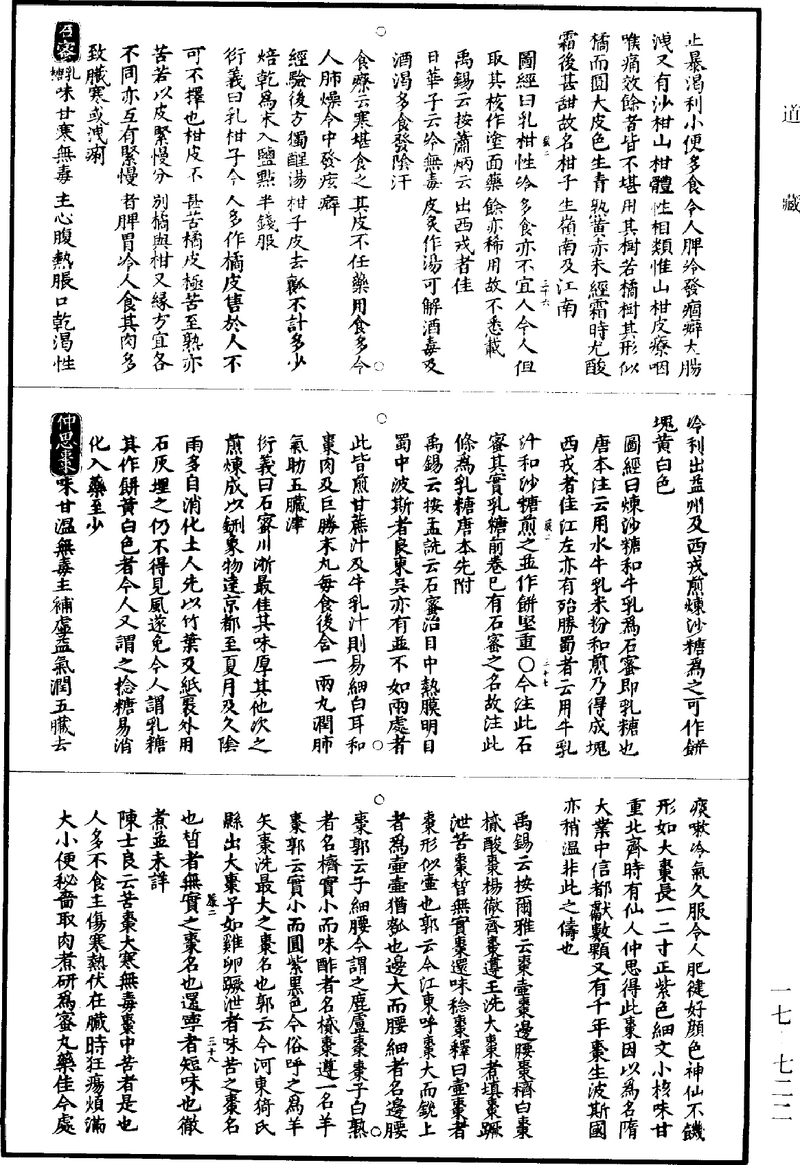 道藏
止暴渴利小便多食令人脾冷發痼癖大腸
洩又有沙柑山柑體性相類惟山柑皮療咽
喉痛效餘者皆不堪用其樹若橘樹其形似
橘而圓大皮色生青熟黃赤未經霜時尤酸
霜後甚甜故名柑子生嶺南及江南
圖經曰乳柑性冷多食亦不宜人今人但
取其核作塗面藥餘亦稀用故不悉載
禹錫云按蕭炳云出西戎者佳
日華子云冷無毒皮炙作湯可解酒毒及
酒渴多食發陰汗
食療云寒堪食之其皮不任藥用食多令
人肺燥令中發痃癖
經驗後方獨醒湯柑子皮去瓤不計多少
焙乾為末入鹽點半錢服
衍義曰乳柑子今人多作橘皮售於人不
可不擇也柑皮不甚苦橘皮極苦至熟亦
苦若以皮緊慢分別橘與柑又緣方宜各
不同亦互有緊慢者脾胃冷人食其肉多
致臟寒或洩痢
石蜜乳糖味甘寒無毒主心腹熱脹口乾渴性
冷利出益州及西戎煎煉沙糖為之可作餅
塊黃白色
圖經曰煉沙糖和牛乳為石蜜即乳糖也
唐本注云用水牛乳米粉和煎乃得成塊
西戎者佳江左亦有殆勝蜀者云用牛乳
汁和沙糖煎之並作餅堅重○今注此石
蜜其實乳糖前卷已有石蜜之名故注此
條為乳糖唐本先附
禹錫云按孟詵云石蜜治目中熱膜明目
蜀中波斯者良東吳亦有並不如兩處者
此皆煎甘蔗汁及牛乳汁則易細白耳和
棗肉及巨勝末丸每食後含一兩丸潤肺
氣助五臟津
衍義曰石蜜川淅最佳其味厚其他次之
煎煉成以鉶象物達京都至夏月及久陰
雨多自消化土人先以竹葉及紙裹外用
石灰埋之仍不得見風遂免今人謂乳糖
其作餅黃白色者今人又謂之捻糖易消
化入藥至少
仲思棗味甘溫無毒主補虛益氣潤五臟去
痰嗽冷氣久服令人肥健好顏色神仙不饑
形如大棗長一二寸正紫色細文小核味甘
重北齊時有仙人仲思得此棗因以為名隋
大業中信都獻數顆又有千年棗生波斯國
亦稍溫非此之儔也
禹錫云按爾雅云棗壺棗邊腰棗櫅白棗
樲酸棗楊徹齊棗遵羊洗大棗煮填棗蹶
泄苦棗皙無實棗還味稔棗釋曰壺棗者
棗形似壺也郭云今江東呼棗大而銳上
者為壺壺猶瓠也邊大而腰細者名邊腰
棗郭云子細腰今謂之鹿盧棗棗子白熟
者名櫅實小而味酢者名樲棗遵一名羊
棗郭云實小而圓紫黑色今俗呼之為羊
矢棗洗最大之棗名也郭云今河東猗氏
縣出大棗子如雞卵蹶泄者味苦之棗名
也皙者無實之棗名也還味者短味也徹
煮並未詳
陳士良云苦棗大寒無毒棗中苦者是也
人多不食主傷寒熱伏在臟時狂瘍煩滿
大小便秘嗇取肉煮研為蜜丸藥佳今處
二十六
二十七
二十八
一七·七二二